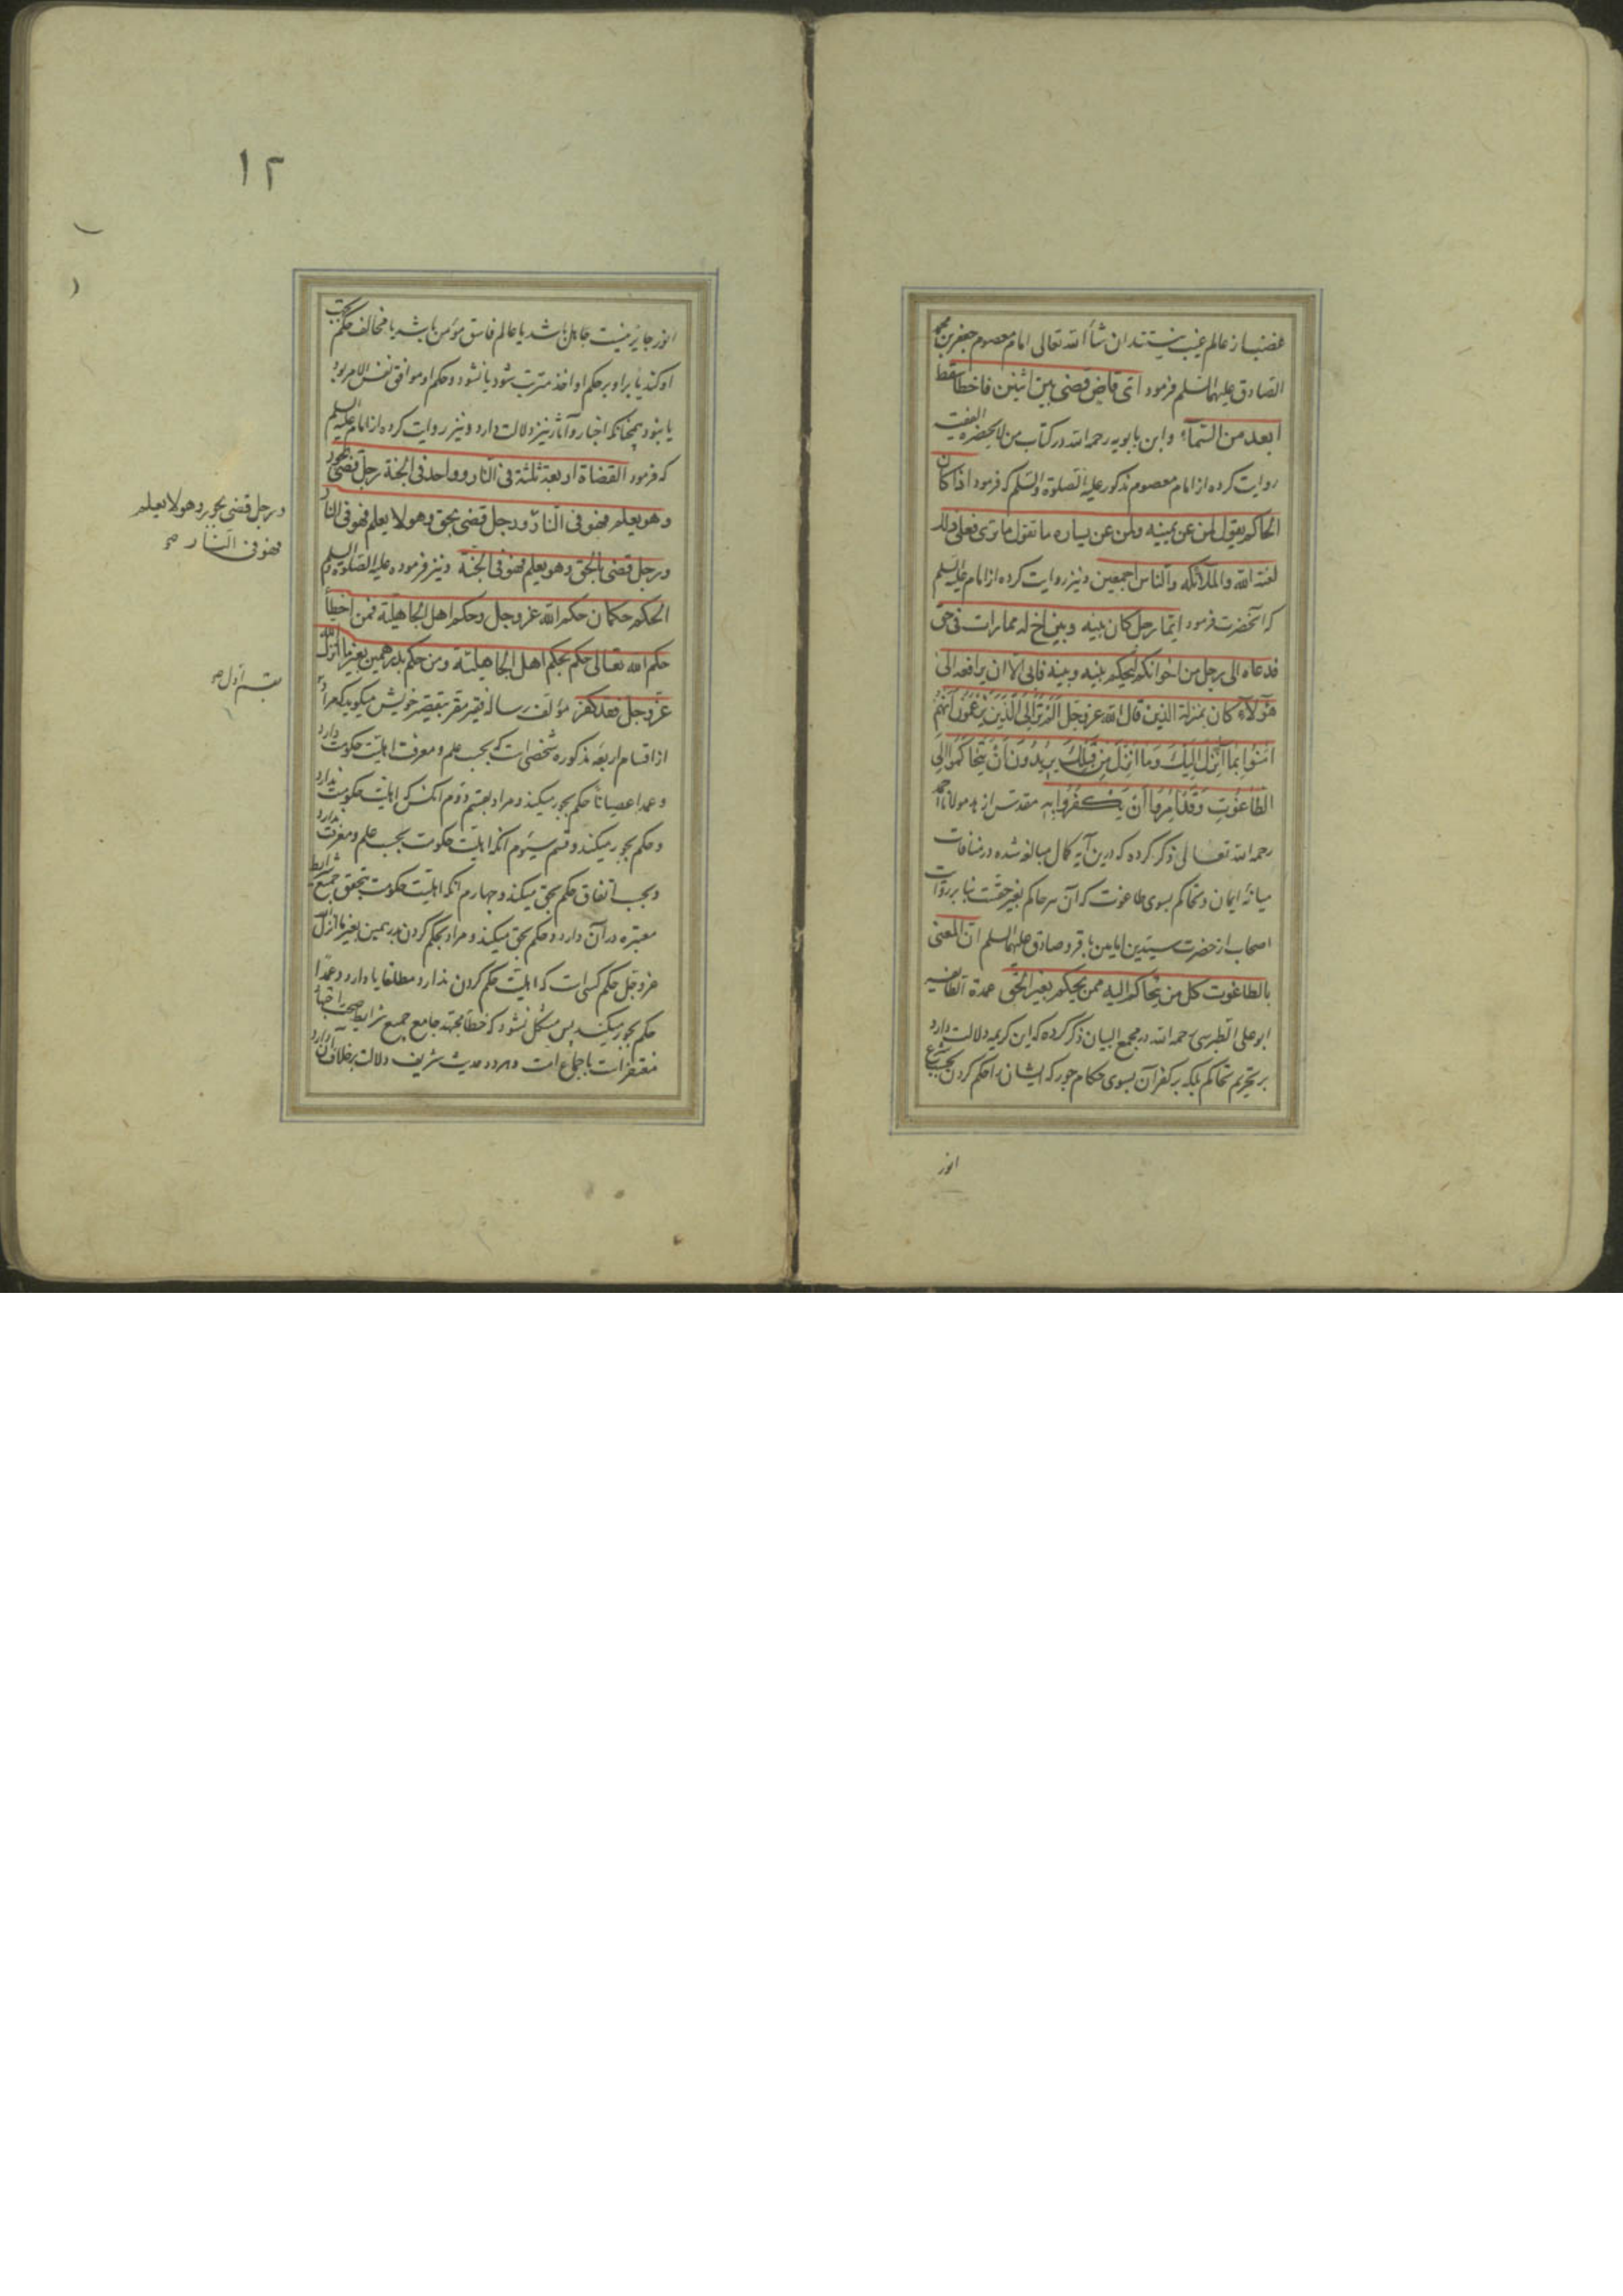 غضب از عالم غیب نیستند ان شاء الله تعالی امام معصوم جعفر بن محمد
الصادق علیهما السلم فرمود ای قاض قضی بین اثنین فاخطأ سقط
ابعد من السمآء و ابن بابویه رحمه الله در کتاب من لا یحضره الفقیه
روایت کرده از امام معصوم مذکور علیه الصلوة والسلم که فرمود اذا کان
الحاکم یقول لمن عن یمینه ولمن عن یساره ما تقول ما تری فعلی ذلک
لعنة الله والملآئکه والناس اجمعین و نیز روایت کرده از امام علیه السلم
که آنحضرت فرمود ایّما رجل کان بینه وبین اخ له ممارات فی حق
فدعاه الی رجل من اخوانکم لیحکم بینه وبینه فابی الا ان یرافعه الی
هؤلآء کان بمنزلة الذین قال الله عز وجل الم تر الی الذین یزعمون انهم
امنوا بما انزل الیک وما انزل من قبلک یریدون ان یتحاکموا الی
الطاغوت وقد امروا ان یکفروا به مقدس ازهد مولانا احمد
رحمه الله تعالی ذکر کرده که درین آیه کمال مبالغه شده در منافات
میانهٔ ایمان و تحاکم بسوی طاغوت که آن هر حاکم بغیر حقست بنا بر روایات
اصحاب از حضرت سیدین امامین باقر و صادق علیهما السلم ان المعنی
بالطاغوت کل من یتحاکم الیه ممن یحکم بغیر الحق عمدة الطایفه
ابو علی الطبرسی رحمه الله در مجمع البیان ذکر کرده که این کریمه دلالت دارد
بر تحریم تحاکم بلکه بر کفر آن بسوی حکام جور که ایشان را حکم کردن بحسب شرع
انور
۱۲
انور جایز نیست جاهل باشد یا عالم فاسق مؤمن باشد یا مخالف حکم
او کند یا براو بر حکم او اخذ مترتب شود یا نشود و حکم او موافق نفس الامر بود
یا نبود چنانکه اخبار و آثار نیز دلالت دارد و نیز روایت کرده از امام علیه السلم
که فرمود القضاة اربعة ثلثة فی النار وواحد فی الجنة رجل قضی بجور
وهو یعلم فهو فی النار ورجل قضی بحق وهو لا یعلم فهو فی النار
ورجل قضی بالحق وهو یعلم فهو فی الجنة و نیز فرموده علیه الصلوة والسلم
الحکم حکمان حکم الله عز وجل وحکم اهل الجاهلیة فمن اخطأ
حکم الله تعالی حکم بحکم اهل الجاهلیة ومن حکم بدرهمین بغیر ما انزل الله
عز وجل فقد کفر مؤلف رساله فقیر مقر بتقصیر خویش میکوید که مراد
از اقسام اربعه مذکوره شخصی است که بحسب علم و معرفت اهلیت حکومت دارد
و عمدا عصیاناً حکم بجور میکند و مراد بقسم دوم آنکس که اهلیت حکومت ندارد
و حکم بجور میکند و قسم سیوم آنکه اهلیت حکومت بحسب علم و معرفت ندارد
و بحسب اتفاق حکم بحق میکند و چهارم آنکه اهلیت حکومت بتحقق جمیع شرایط
معتبره در آن دارد و حکم بحق میکند و مراد بحکم کردن بدرهمین بغیر ما انزل الله
عز وجل حکم کسی است که اهلیت حکم کردن ندارد مطلقا یا دارد و عمدا
حکم بجور میکند پس مشکل نشود که خطأ مجتهد جامع جمیع شرایط صحت اجتهاد
مغتفر است باجماع امت و هر دو حدیث شریف دلالت بر خلاف آن دارد
ورجل قضی بجور وهو لا یعلم
فهو فی النار صح
بقسم اول صح